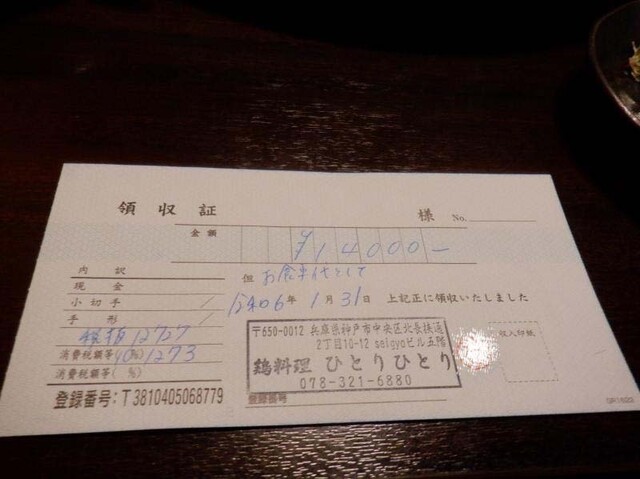 領収証
様 No.
金額 ¥14000-
内訳
但 お食事代として
現金
小切手
令和06年1月31日 上記正に領収いたしました
手形
税抜 12727
消費税額等(10%) 1273
消費税額等( %)
登録番号:T3810405068779
〒650-0012 兵庫県神戸市中央区北長狭通
2丁目10-12 seigyoビル五階
鶏料理 ひとりひとり
078-321-6880
登録番号
収入印紙